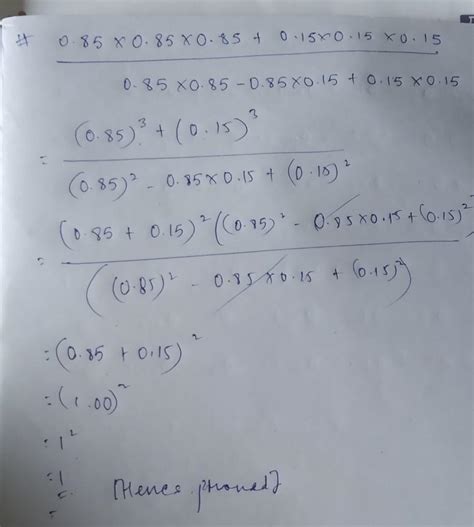 # 0.85 × 0.85 × 0.85 + 0.15 × 0.15 × 0.15
0.85 × 0.85 - 0.85 × 0.15 + 0.15 × 0.15
= (0.85)³ + (0.15)³
(0.85)² - 0.85 × 0.15 + (0.15)²
= (0.85 + 0.15)² ((0.85)² - 0.85 × 0.15 + (0.15)²
((0.85)² - 0.85 × 0.15 + (0.15)²)
= (0.85 + 0.15)²
= (1.00)²
= 1²
= 1
[Hence proved]
=